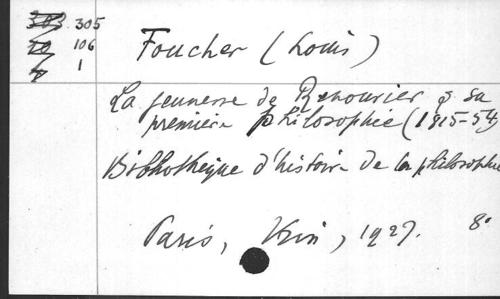 303 305
106
1
Foucher (Louis)
La jeunesse de Renouvier & sa
première philosophie (1815-54)
Bibliothèque d'histoire de la philosophie
Paris, Vrin, 1927. 8°